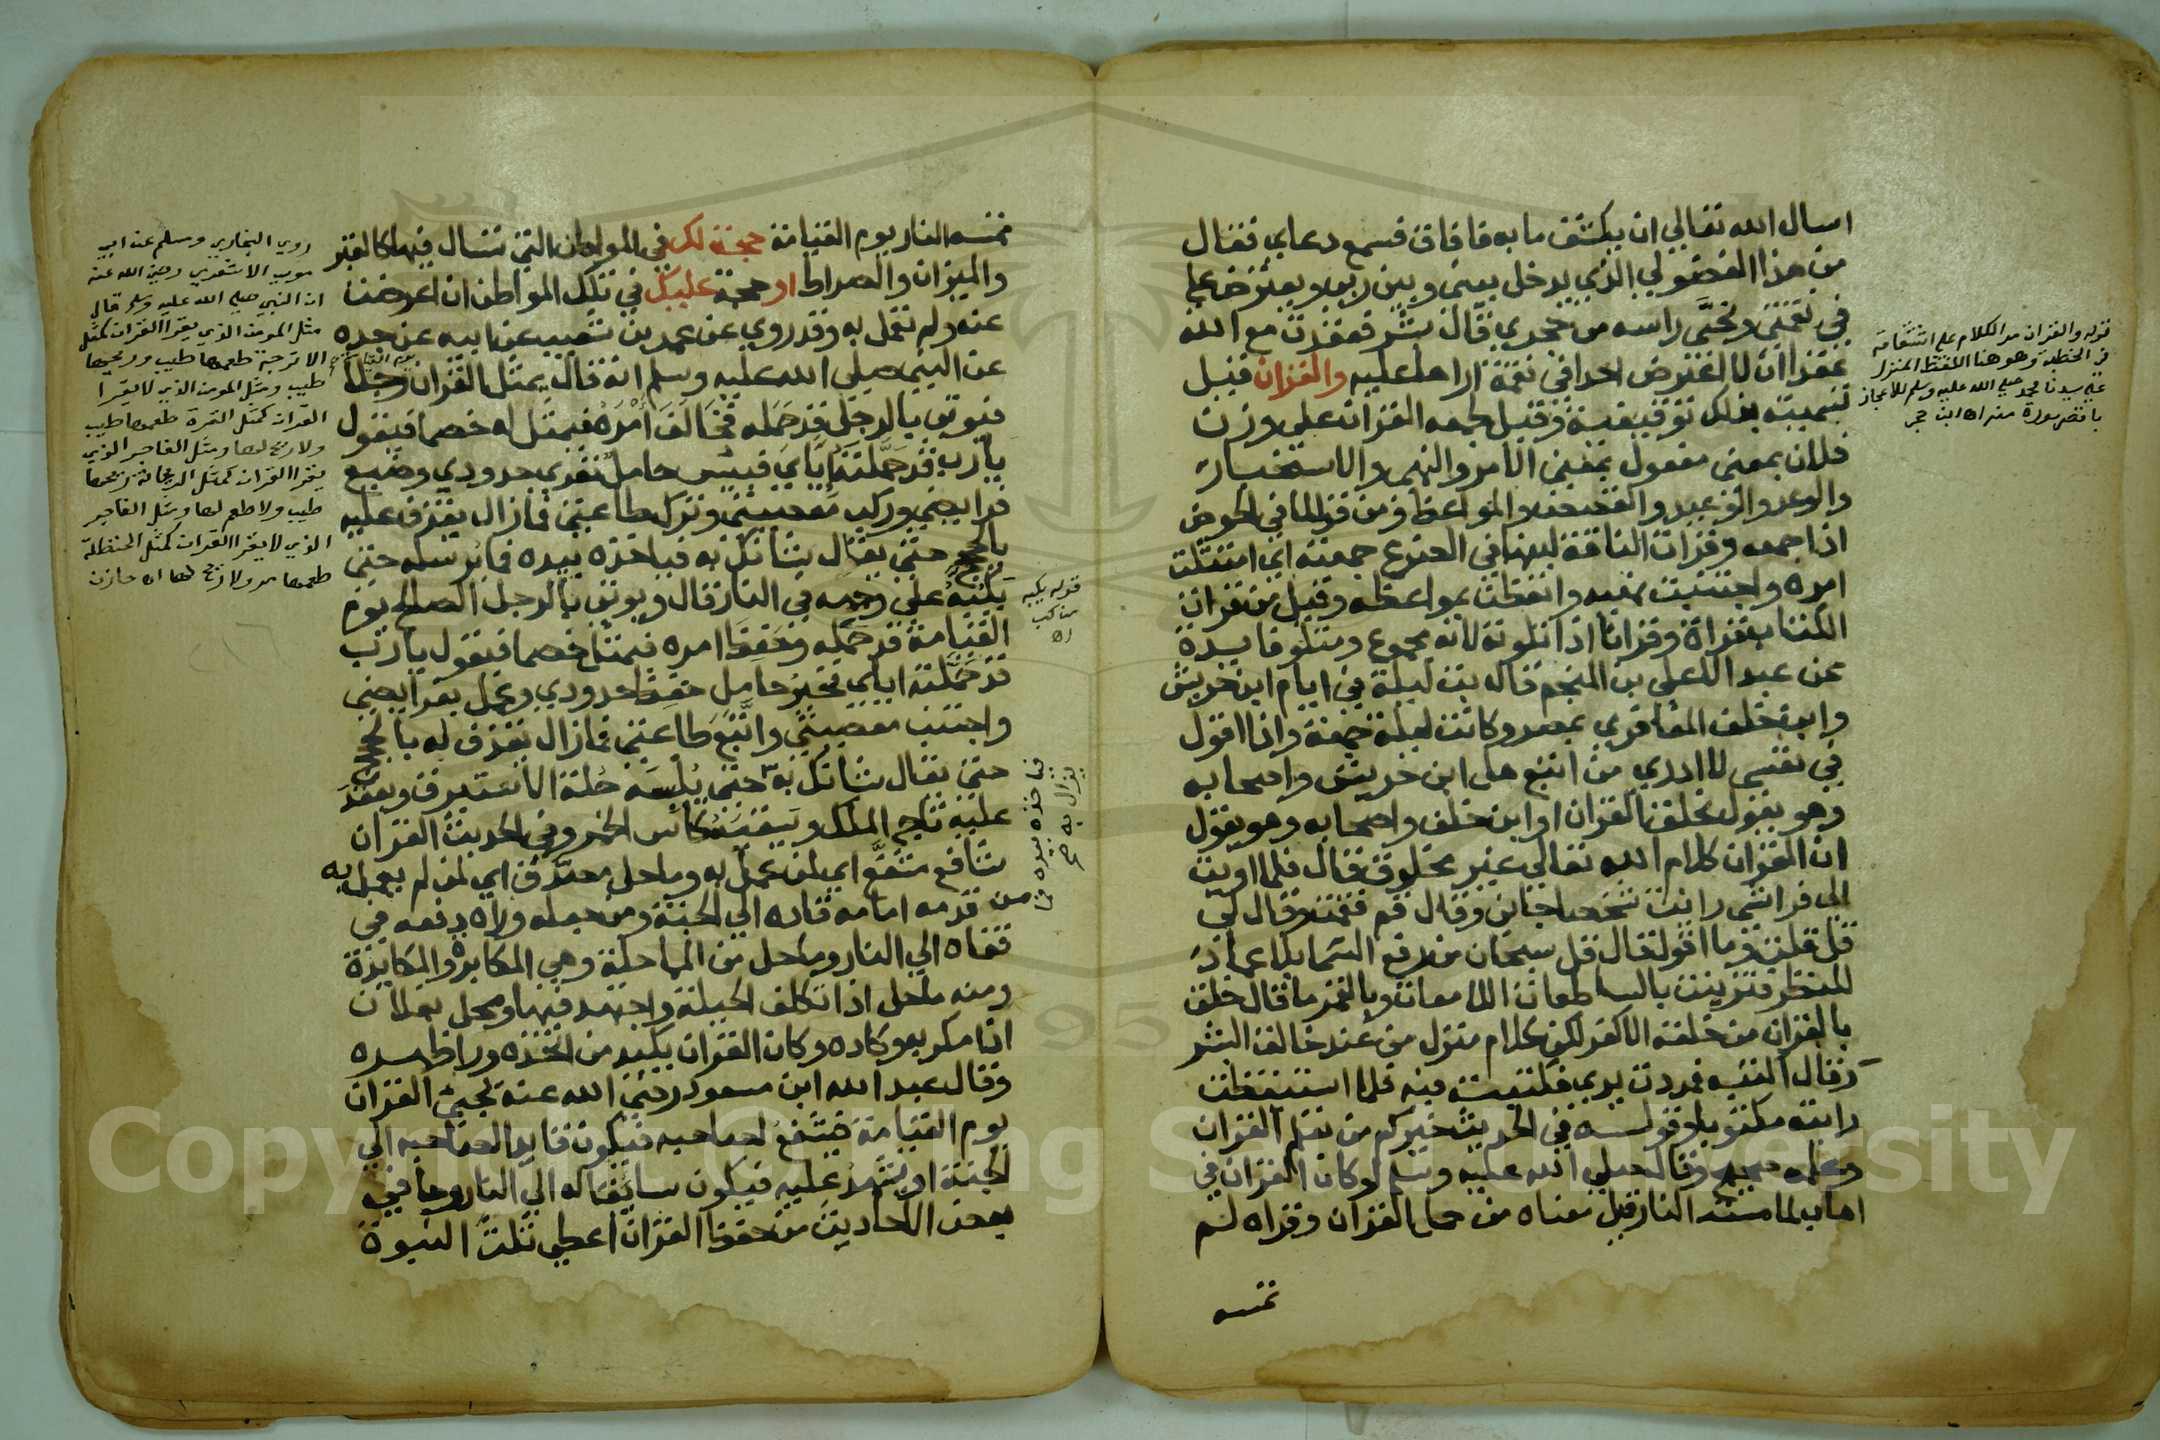 اسال الله تعالي ان يكشف ما به فافاق فسمع دعاي فقال
من هذا الفضولي الذي يدخل بيني وبين ربي ويعترض علي
في نعمتي ونحَّي راسه من حجري قال بشر فعقدت مع الله
عقدا ان لا اعترض احدا في نعمة اراها عليه والقران قيل
تسميته بذلك توقيفية وقيل لجمعه القران علي وزن
فعلان بمعني مفعول بمعني الامر والنهي والاستخبار
والوعد والوعيد والقصص والمواعظ ومن قرا الما في الحوض
اذا جمعه وقرات الناقة لبنها في الضرع جمعته اي امتثلت
امره واجتنبت نهيه واتعظت بمواعظه وقيل من قرات
الكتاب قراة وقرانا اذا تلوته لانه مجموع ومتلو فايدة
عن عبد الاعلي بن المنجم قال بت ليلة في ايام ابن خريش
وابن خلف المعافري بمصر وكانت ليلة جمعة وانا اقول
في نفسي لا ادري من اتبع هل ابن خريش واصحابه
وهو يقول بخلق القران او ابن خلف واصحابه وهو يقول
ان القران كلام الله تعالي غير مخلوق قال فلما اويت
الي فراشي رايت شخصا جاني وقال قم فقمت وقال لي
قل قلت وما اقول قال قل سبحان من رفع السما بلا عماد
للنظر فتزينت بالساطعات اللامعات وبالقمر ما قال خلق
بالقران من خلقه الا كفر لكن كلام منزل من عند خالق البشر
وقال اكتبه فمددت يدي فكتبت فيه فلما استيقظت
رايته مكتوبا وقوله في الحديث خيركم من تعلم القران
وعلمه صحيح وقال صلي الله عليه وسلم لو كان القران في
اهاب لما مسته النار قيل معناه من حمل القران وقراه لم
تمسه
قوله والقران مر الكلام علي اشتقاقه
في الخطبة وهو هنا اللفظ المنزل
علي سيدنا محمد صلي الله عليه وسلم للاعجاز
باقصر سورة منه اه ابن حجر
تمسه النار يوم القيامة حجة لك في المواطن التي تسال فيها كالقبر
والميزان والصراط او حجة عليك في تلك المواطن ان اعرضت
عنه ولم تعمل به وقد روي عن عمر بن شعيب عن ابيه عن جده
عن النبي صلي الله عليه وسلم انه قال يمثل القران رجلا
فيوتي بالرجل قد حَمَله فخَالَفَ اَمْرَه فيمثل له خصما فيقول
يا رب قد حَمَّلته ايَّاي فبيس حامل تعدي حدودي وضيع
فرايضي وركب معصيتي وترك طاعتي فما زال يقذف عليه
بالحجج حتي يقال شانك به فياخذه بيده فما يرسله حتي
يكبه علي وجهه في النار قال ويوتي بالرجل الصالح يوم
القيامة قد حمله وحفظ امره فيمثل خصما فيقول يا رب
قد حَمَّلته اياي فخير حامل حفظ حدودي وعمل بفرايضي
واجتنب معصيتي واتَّبَع طاعتي فما زال يقذف له بالحجج
حتي يقال شانك به حتي يُلبسَه حُلة الاستبرق ويعقد
عليه تاج الملك ويسقيه كاس الخمر وفي الحديث القران
شافع مشفَّع اي لمن عمل به وماحل مصدق اي لمن لم يعمل به
من قدمه امامه قاده الي الجنة ومن جعله وراه دفعه في
قفاه الي النار وماحل من المماحلة وهي المكابرة والمكايدة
ومنه ماحل اذا تكلف الحيلة واجتهد فيها ومحل بفلان
اذا مكر به وكاده وكان القران يكيد من اتخذه وراظهره
وقال عبد الله ابن مسعود رضي الله عنه يجي القران
يوم القيامة فيشفعُ لصاحبه فيكون قايدا لصاحبه الي
الجنة او يشهدُ عليه فيكون سايقا له الي النار وجا في
بعض الاحاديث من حفظ القران اعطي ثلث النبوة
قوله يكبه
من كب
اه
فياخذه بيده
روي البخاري ومسلم عن ابي
موسي الاشعري رضي الله عنه
ان النبي صلي الله عليه وسلم قال
مثل المومن الذي يقرا القران كمثل
الاترجة طعمها طيب وريحها
طيب ومثل المومن الذي لا يقرا
القران كمثل التمرة طعمها طيب
ولا ريح لها ومثل الفاجر الذي
يقرا القران كمثل الريحانة ريحها
طيب ولا طعم لها ومثل الفاجر
الذي لا يقرا القران كمثل الحنظلة
طعمها مر ولا ريح لها اه خازن
Copyright © King Saud University